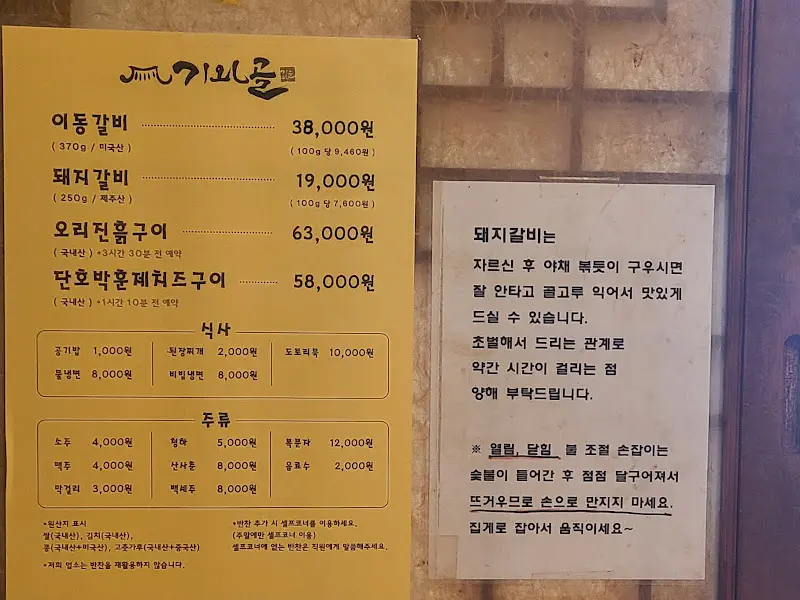 기와골
이동갈비 38,000원
( 370g / 미국산 ) ( 100g 당 9,460원 )
돼지갈비 19,000원
( 250g / 제주산 ) ( 100g 당 7,600원 )
오리진흙구이 63,000원
( 국내산 ) *3시간 30분 전 예약
단호박훈제치즈구이 58,000원
( 국내산 ) *1시간 10분 전 예약
식사
공기밥 1,000원 된장찌개 2,000원 도토리묵 10,000원
물냉면 8,000원 비빔냉면 8,000원
주류
소주 4,000원 청하 5,000원 복분자 12,000원
맥주 4,000원 산사춘 8,000원 음료수 2,000원
막걸리 3,000원 백세주 8,000원
*원산지 표시
쌀(국내산), 김치(국내산),
콩(국내산+미국산), 고춧가루(국내산+중국산)
*저희 업소는 반찬을 재활용하지 않습니다.
*반찬 추가 시 셀프코너를 이용하세요.
(주말에만 셀프코너 이용)
셀프코너에 없는 반찬은 직원에게 말씀해주세요.
돼지갈비는
자르신 후 야채 볶듯이 구우시면
잘 안타고 골고루 익어서 맛있게
드실 수 있습니다.
초벌해서 드리는 관계로
약간 시간이 걸리는 점
양해 부탁드립니다.
※ 열림, 닫힘 불 조절 손잡이는
숯불이 들어간 후 점점 달구어져서
뜨거우므로 손으로 만지지 마세요.
집게로 잡아서 움직이세요~